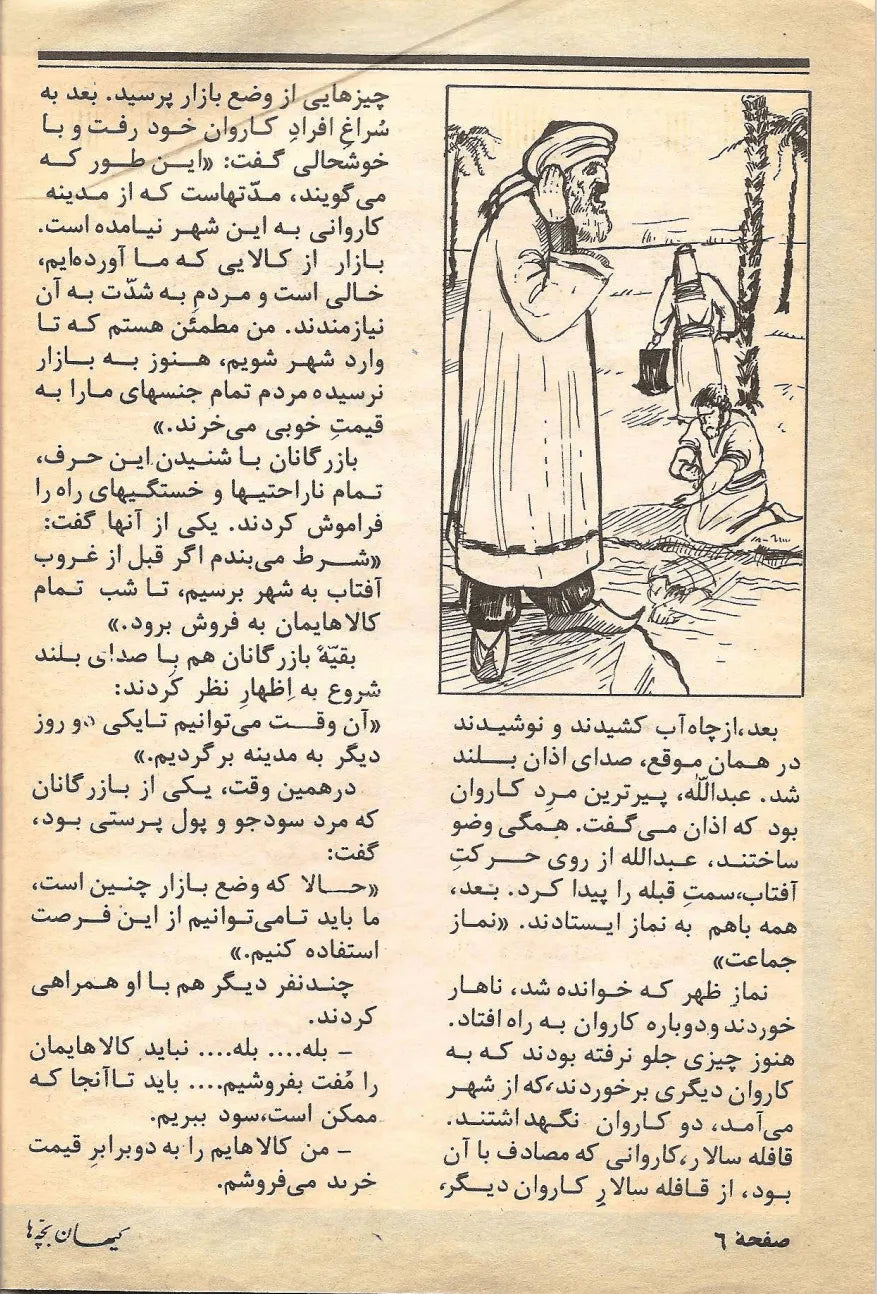 بعد، از چاه آب کشیدند و نوشیدند
در همان موقع، صدای اذان بلند
شد. عبداللّه، پیرترین مردِ کاروان
بود که اذان می‌گفت. همگی وضو
ساختند، عبدالله از روی حرکتِ
آفتاب، سمتِ قبله را پیدا کرد. بعد،
همه باهم به نماز ایستادند. «نماز
جماعت»
نمازِ ظهر که خوانده شد، ناهار
خوردند ودوباره کاروان به راه افتاد.
هنوز چیزی جلو نرفته بودند که به
کاروان دیگری برخوردند، که از شهر
می‌آمد، دو کاروان نگهداشتند.
قافله سالار، کاروانی که مصادف با آن
بود، از قافله سالارِ کاروان دیگر،
چیزهایی از وضع بازار پرسید. بعد به
سُراغِ افرادِ کاروان خود رفت و با
خوشحالی گفت: «این طور که
می‌گویند، مدّتهاست که از مدینه
کاروانی به این شهر نیامده است.
بازار از کالایی که ما آورده‌ایم،
خالی است و مردم به شدّت به آن
نیازمندند. من مطمئن هستم که تا
وارد شهر شویم، هنوز به بازار
نرسیده مردم تمام جنسهای مارا به
قیمتِ خوبی می‌خرند.»
بازرگانان با شنیدن این حرف،
تمام ناراحتیها و خستگیهای راه را
فراموش کردند. یکی از آنها گفت:
«شرط می‌بندم اگر قبل از غروب
آفتاب به شهر برسیم، تا شب تمام
کالاهایمان به فروش برود.»
بقیّهٔ بازرگانان هم با صدای بلند
شروع به اِظهارِ نظر کردند:
«آن وقت می‌توانیم تایکی دو روز
دیگر به مدینه برگردیم.»
درهمین وقت، یکی از بازرگانان
که مرد سودجو و پول پرستی بود،
گفت:
«حالا که وضع بازار چنین است،
ما باید تامی‌توانیم از این فرصت
استفاده کنیم.»
چندنفر دیگر هم با او همراهی
کردند.
– بله.... بله.... نباید کالاهایمان
را مُفت بفروشیم.... باید تاآنجا که
ممکن است، سود ببریم.
– من کالاهایم را به دوبرابرِ قیمت
خرید می‌فروشم.
صفحهٔ ٦
کیهان بچّه‌ها